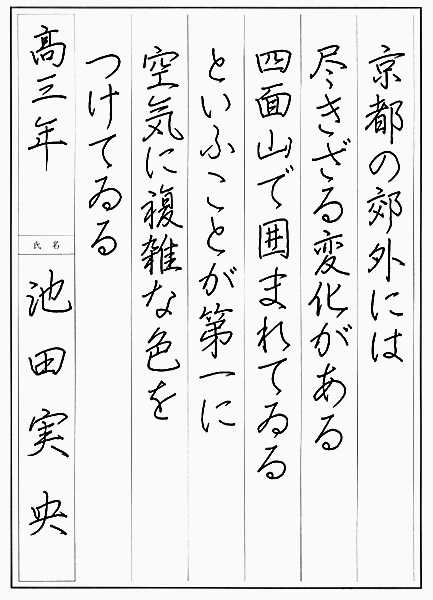 京都の郊外には
尽きざる変化がある
四面山で囲まれてゐる
といふことが第一に
空気に複雑な色を
つけてゐる
高三年
氏名
池田実央